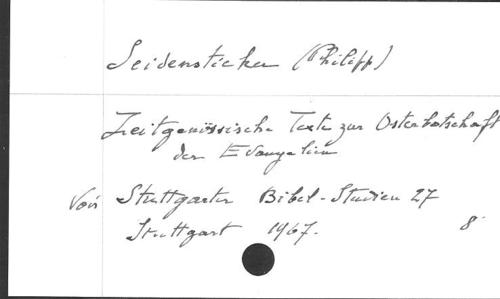 Seidensticker (Philipp)
Zeitgenössische Texte zur Osterbotschaft
der Evangelien
Voir Stuttgarter Bibel-Studien 27
Stuttgart 1967. 8°